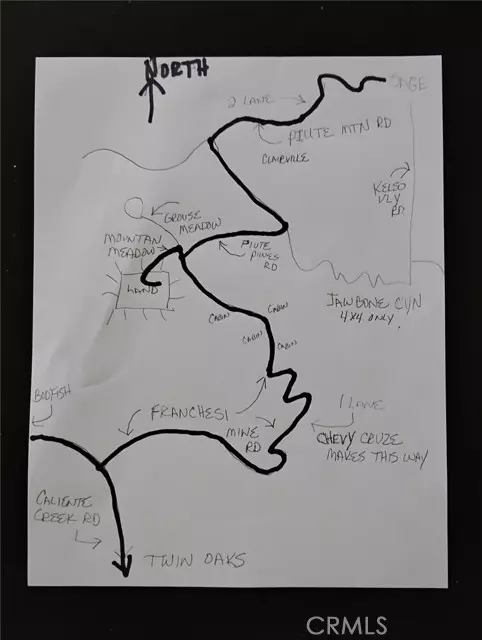 NORTH
2 LANE
PIUTE MTN RD
CLAIRVILLE
KELSO
VLY
RD
GROUSE
MEADOW
MOUNTAN
MEADOW
PIUTE
PINES
RD
LAND
JAWBONE CYN
4X4 ONLY.
CABIN
CABIN
CABIN
CABIN
BODFISH
FRANCHESI
MINE
RD
1 LANE
CHEVY CRUZE
MAKES THIS WAY
CALIENTE
CREEK RD
TWIN OAKS
CRMLS